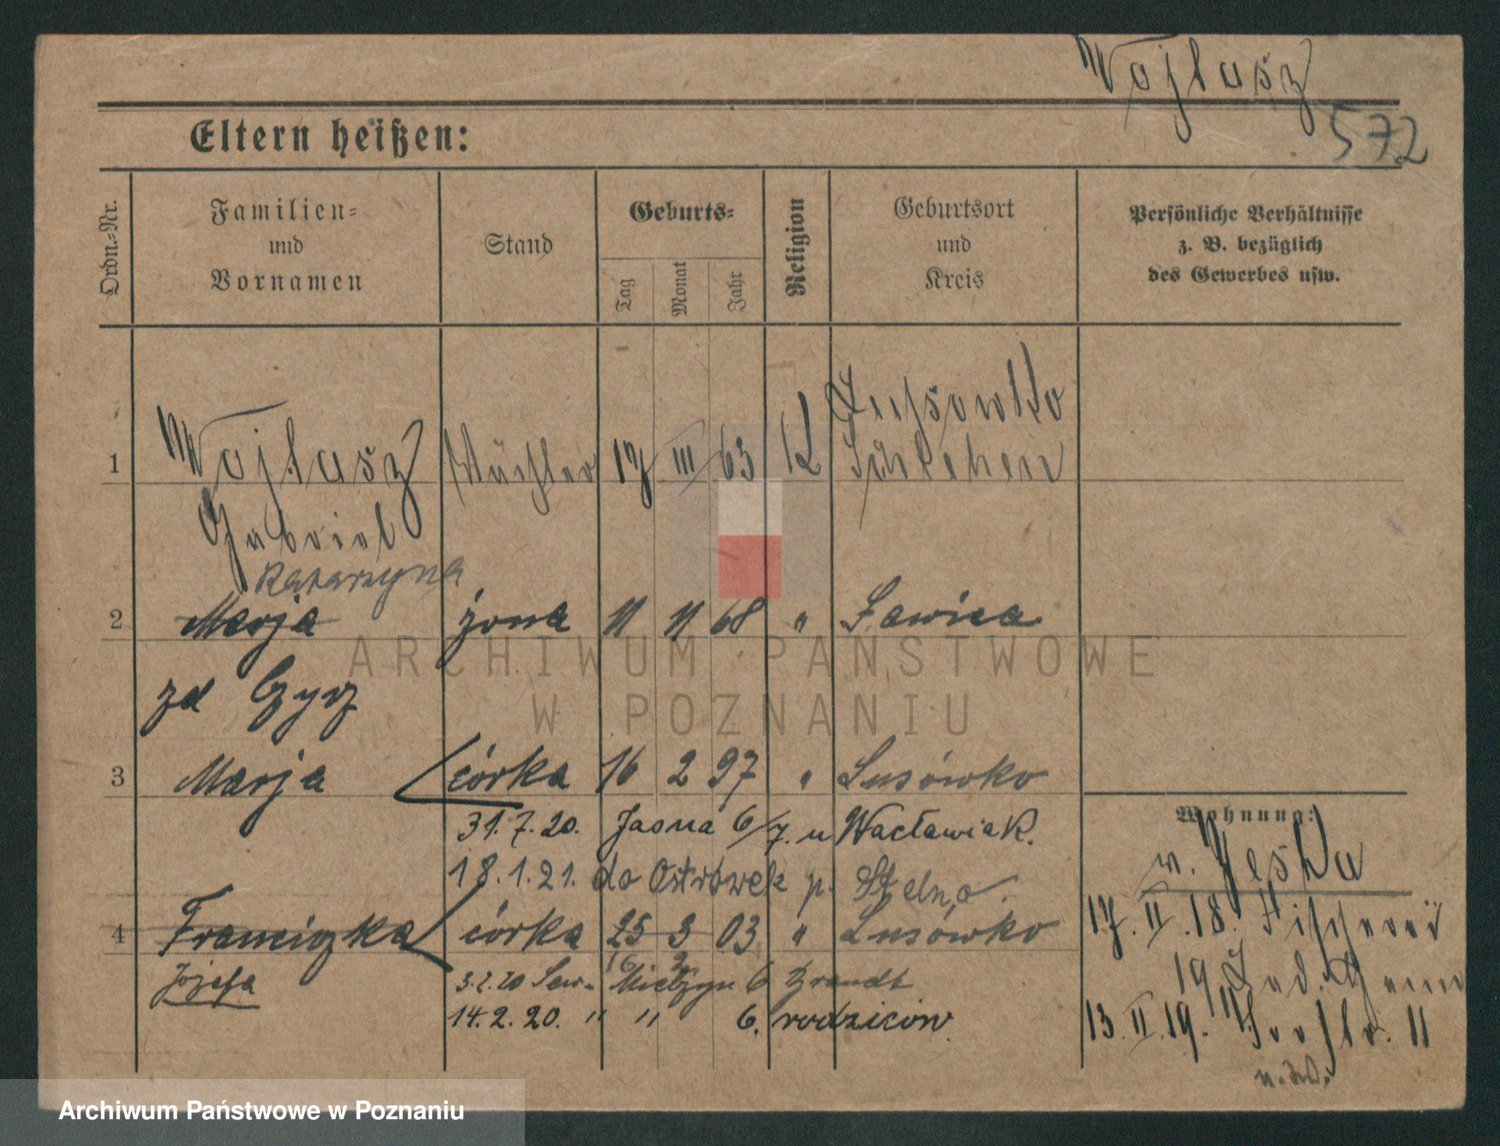 Wojtasz
572
Eltern heißen:
Ordn.-Nr.
Familien-
und
Vornamen
Stand
Geburts-
Tag
Monat
Jahr
Religion
Geburtsort
und
Kreis
Persönliche Verhältnisse
z. B. bezüglich
des Gewerbes usw.
1 Wojtasz 17 III 63 K
Gabriel
Katarzyna
2 Marja żona 11 11 68 " Ławica
zd Czyż
3 Marja córka 16 2 97 " Lusówko
31.7.20. Jasna 6/7. u Wacławiak.
18.1.21. do Ostrówek p.
Wohnung:
4 Franciszka córka 25 3 03 " Lusówko
16 2
17. II. 18.
Józefa
3.2.20 Mielżyn 6 Brandt
14.2.20. " " 6. rodziców.
19
13. II. 19. 11
ARCHIWUM PAŃSTWOWE
W POZNANIU
Archiwum Państwowe w Poznaniu